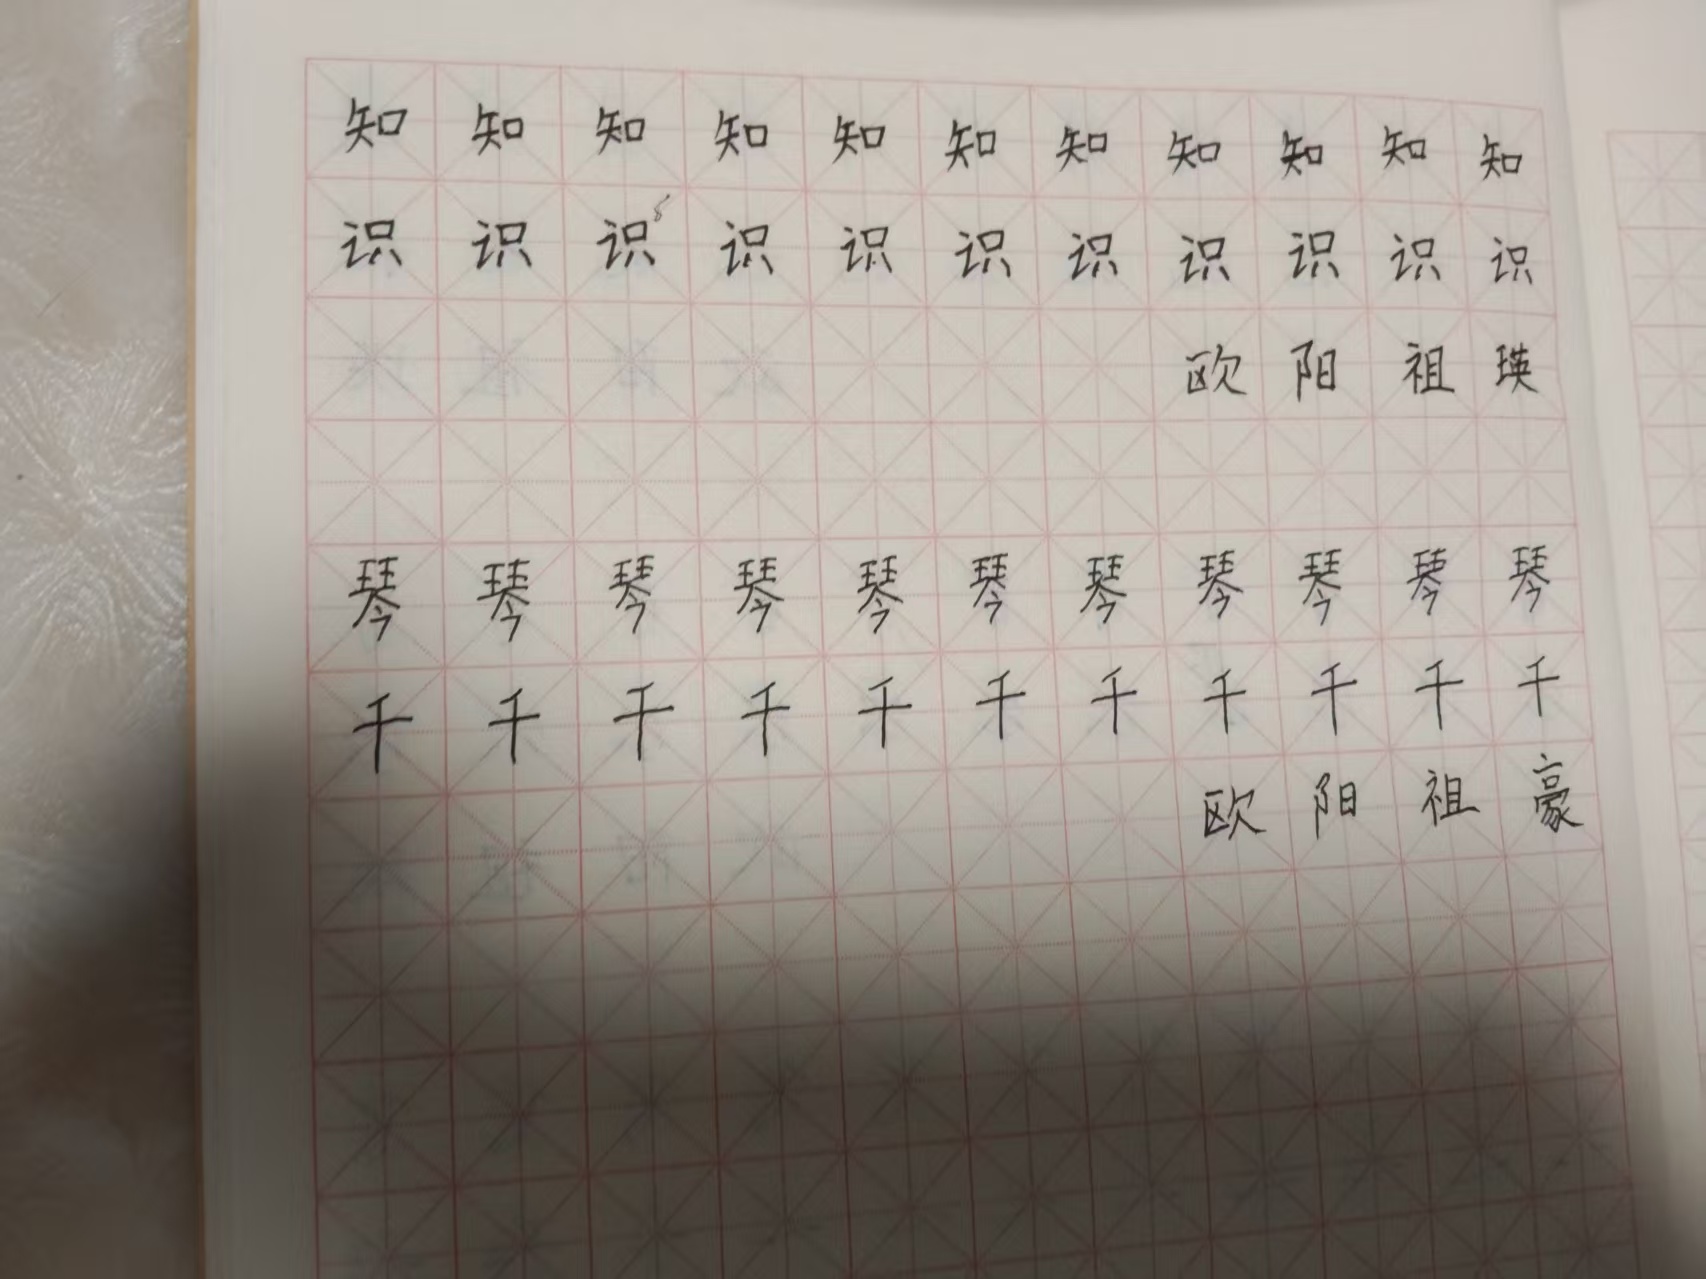 知知知知知知知知知知知
识识识识识识识识识识识
欧阳祖瑛
琴琴琴琴琴琴琴琴琴琴琴
千千千千千千千千千千千
欧阳祖豪